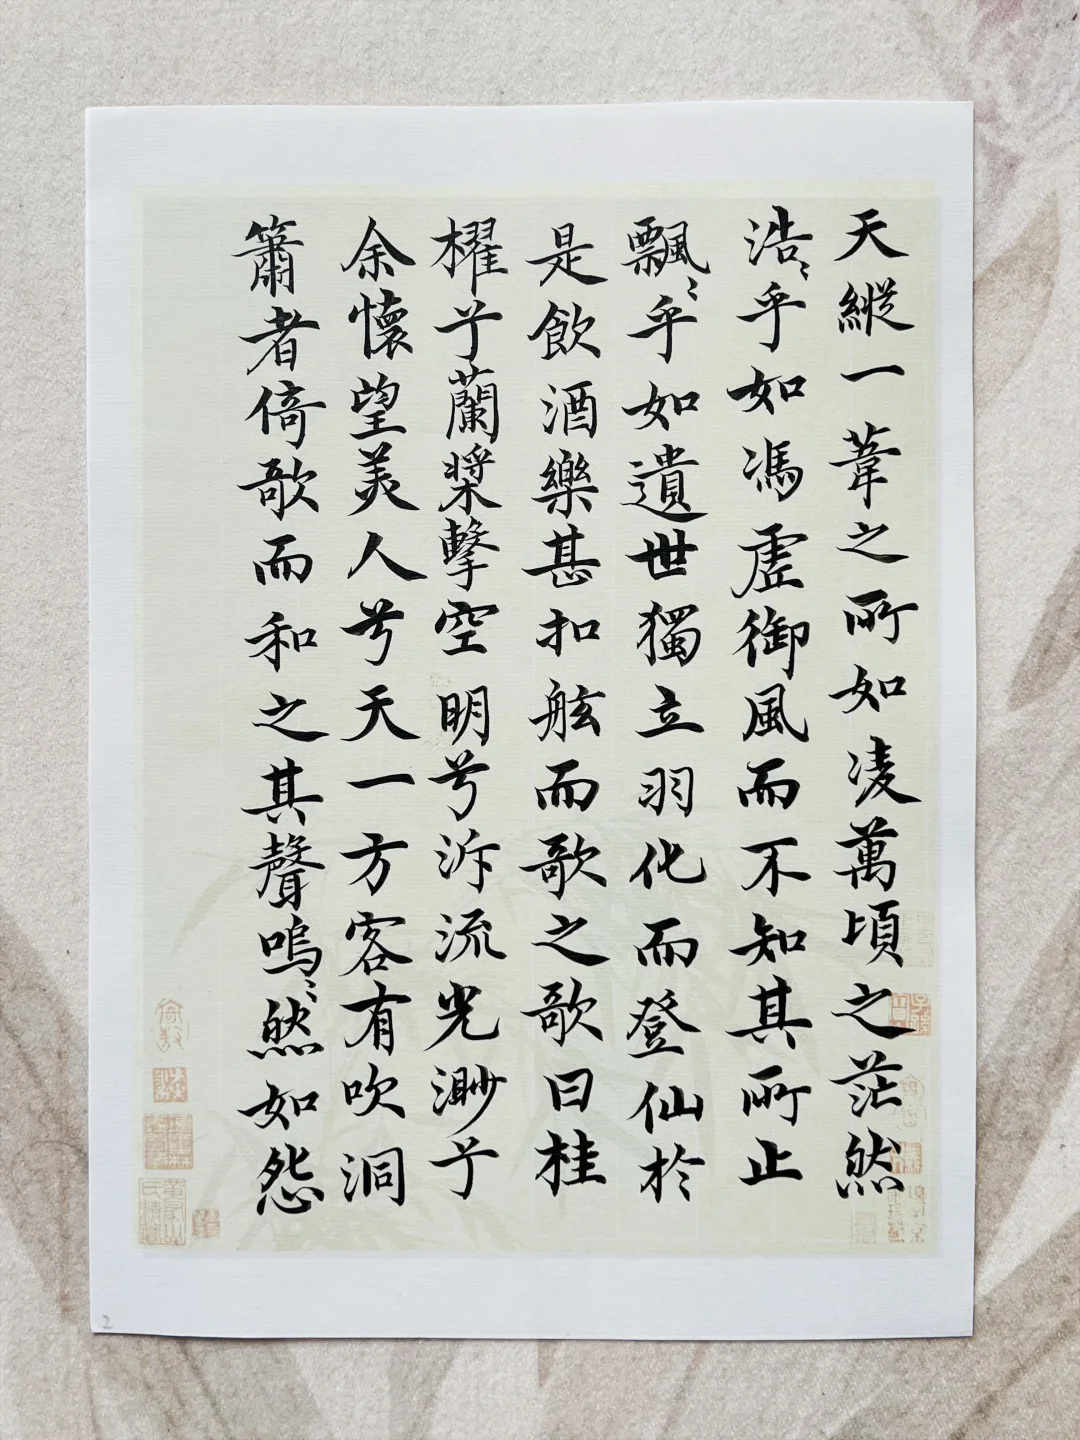 天縱一葦之所如凌萬頃之茫然
浩〻乎如馮虛御風而不知其所止
飄〻乎如遺世獨立羽化而登仙於
是飲酒樂甚扣舷而歌之歌曰桂
櫂兮蘭槳擊空明兮泝流光渺兮
余懷望美人兮天一方客有吹洞
簫者倚歌而和之其聲嗚〻然如怨
2